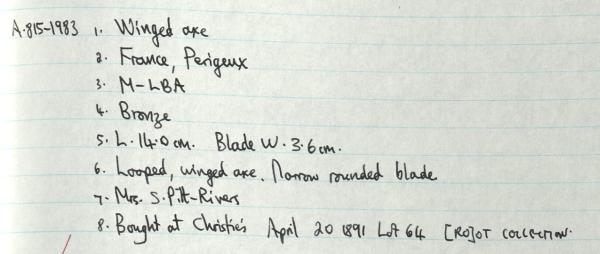 A.815-1983 1. Winged axe
2. France, Perigeux
3. M-LBA
4. Bronze
5. L. 14.0 cm. Blade W. 3.6 cm.
6. Looped, winged axe. Narrow rounded blade
7. Mrs. S. Pitt-Rivers
8. Bought at Christie's April 20 1891 Lot 64 [RO]OT COLLECTION.